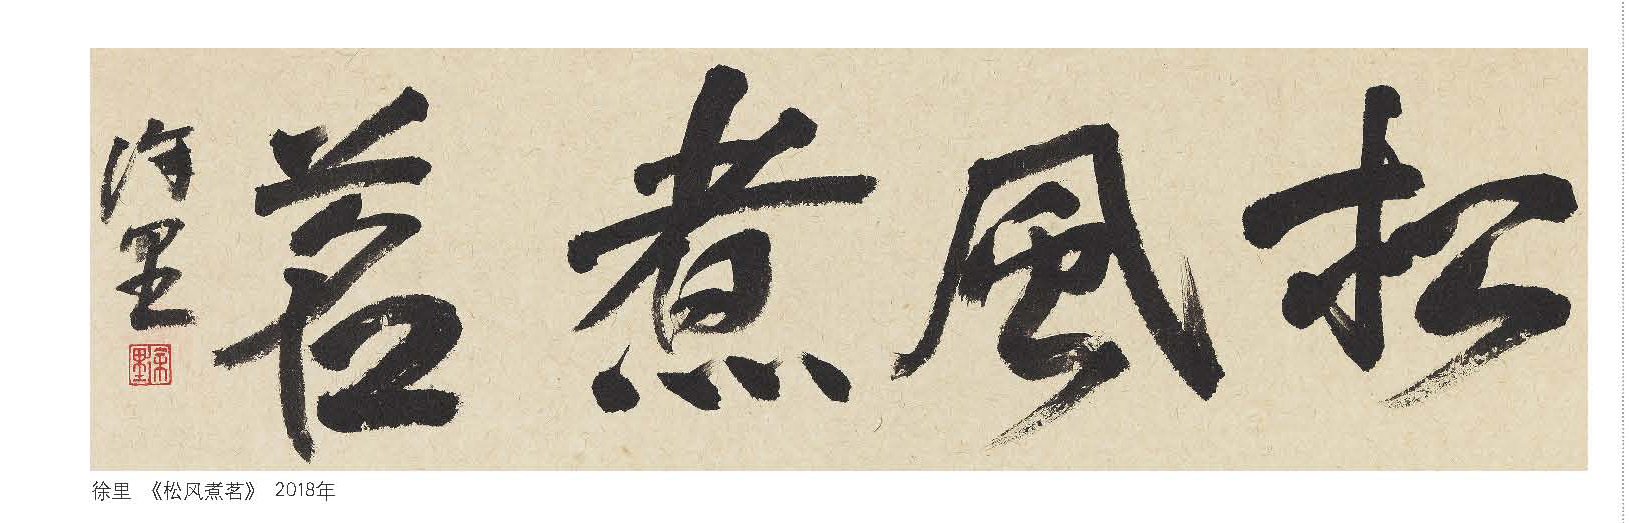 松風煮茗
徐里
徐里
徐里 《松风煮茗》 2018年